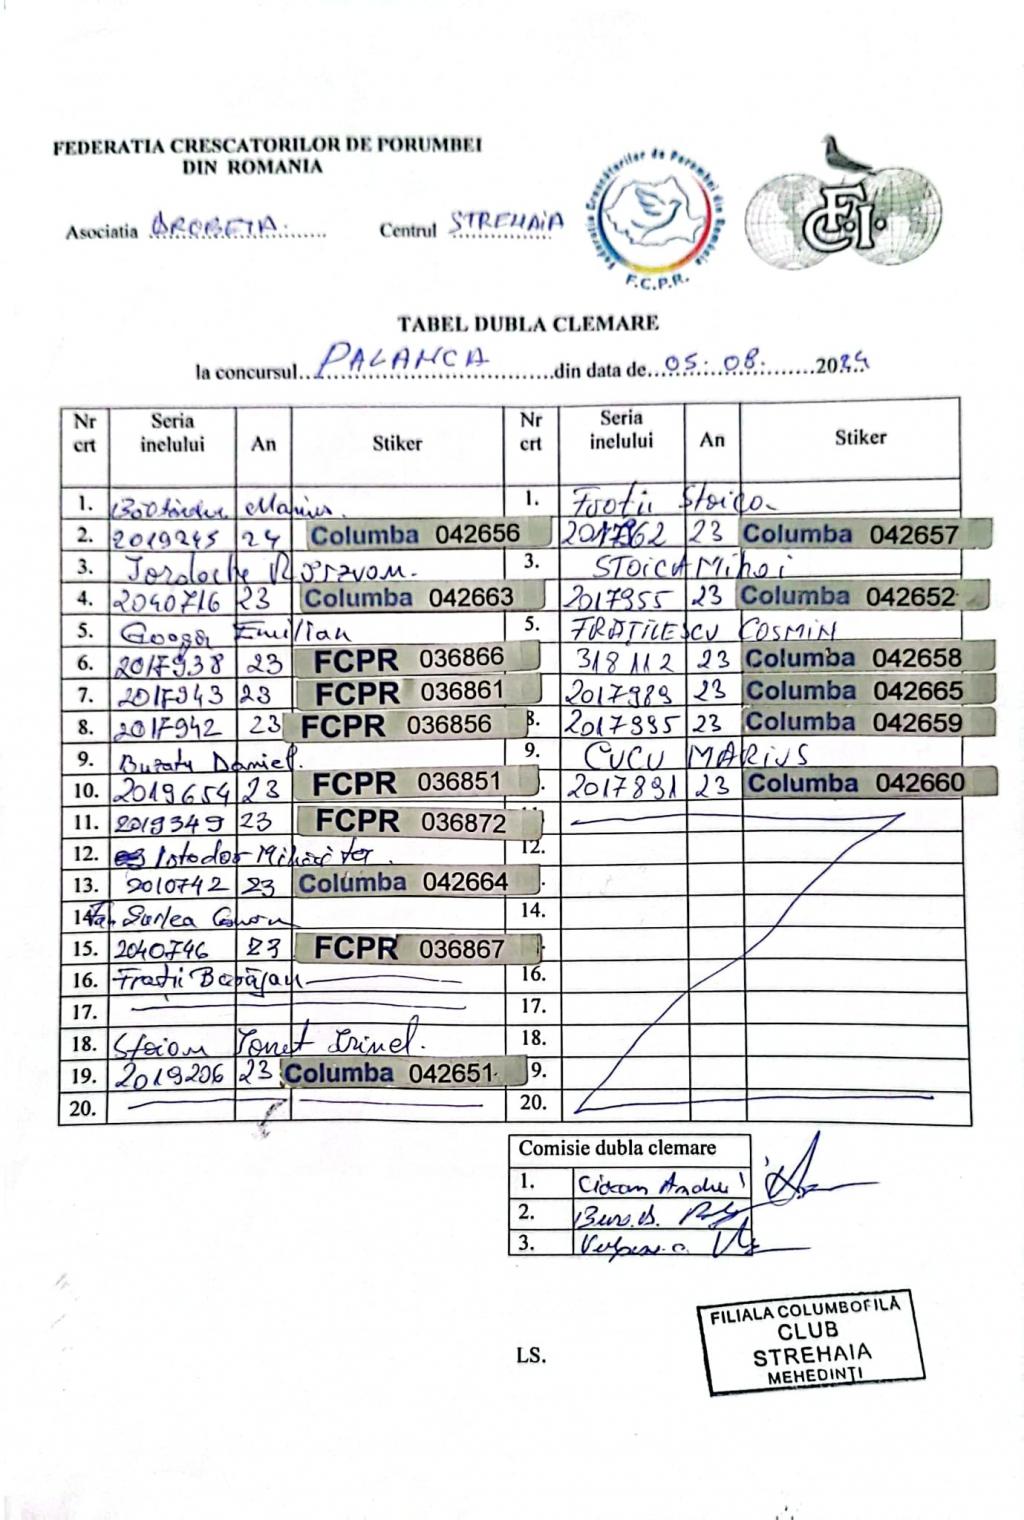 FEDERATIA CRESCATORILOR DE PORUMBEI
DIN ROMANIA
Asociatia DROBETA Centrul STREHAIA
Federatia Crescătorilor de Porumbei din România
F.C.P.R.
F.C.I.
TABEL DUBLA CLEMARE
la concursul PALANCA din data de 05.08.2024
Nr crt Seria inelului An Stiker Nr crt Seria inelului An Stiker
1. Marius 1. Stoica
2. 2019245 24 Columba 042656 2017962 23 Columba 042657
3. Iordache Răzvan. 3. STOICA Mihai
4. 2040716 23 Columba 042663 2017955 23 Columba 042652
5. Emilian 5. FRATILESCU COSMIN
6. 2017938 23 FCPR 036866 318112 23 Columba 042658
7. 2017943 23 FCPR 036861 2017989 23 Columba 042665
8. 2017942 23 FCPR 036856 8. 2017995 23 Columba 042659
9. Buzatu Daniel. 9. CUCU MARIUS
10. 2019654 23 FCPR 036851 2017891 23 Columba 042660
11. 2019349 23 FCPR 036872
12. Istodor 12.
13. 2010742 23 Columba 042664
14. 14.
15. 2040746 23 FCPR 036867
16. Frații 16.
17. 17.
18. Stoian Ionut Irinel. 18.
19. 2019206 23 Columba 042651 9.
20. 20.
Comisie dubla clemare
1. Andrei
2.
3.
LS.
FILIALA COLUMBOFILĂ
CLUB
STREHAIA
MEHEDINȚI